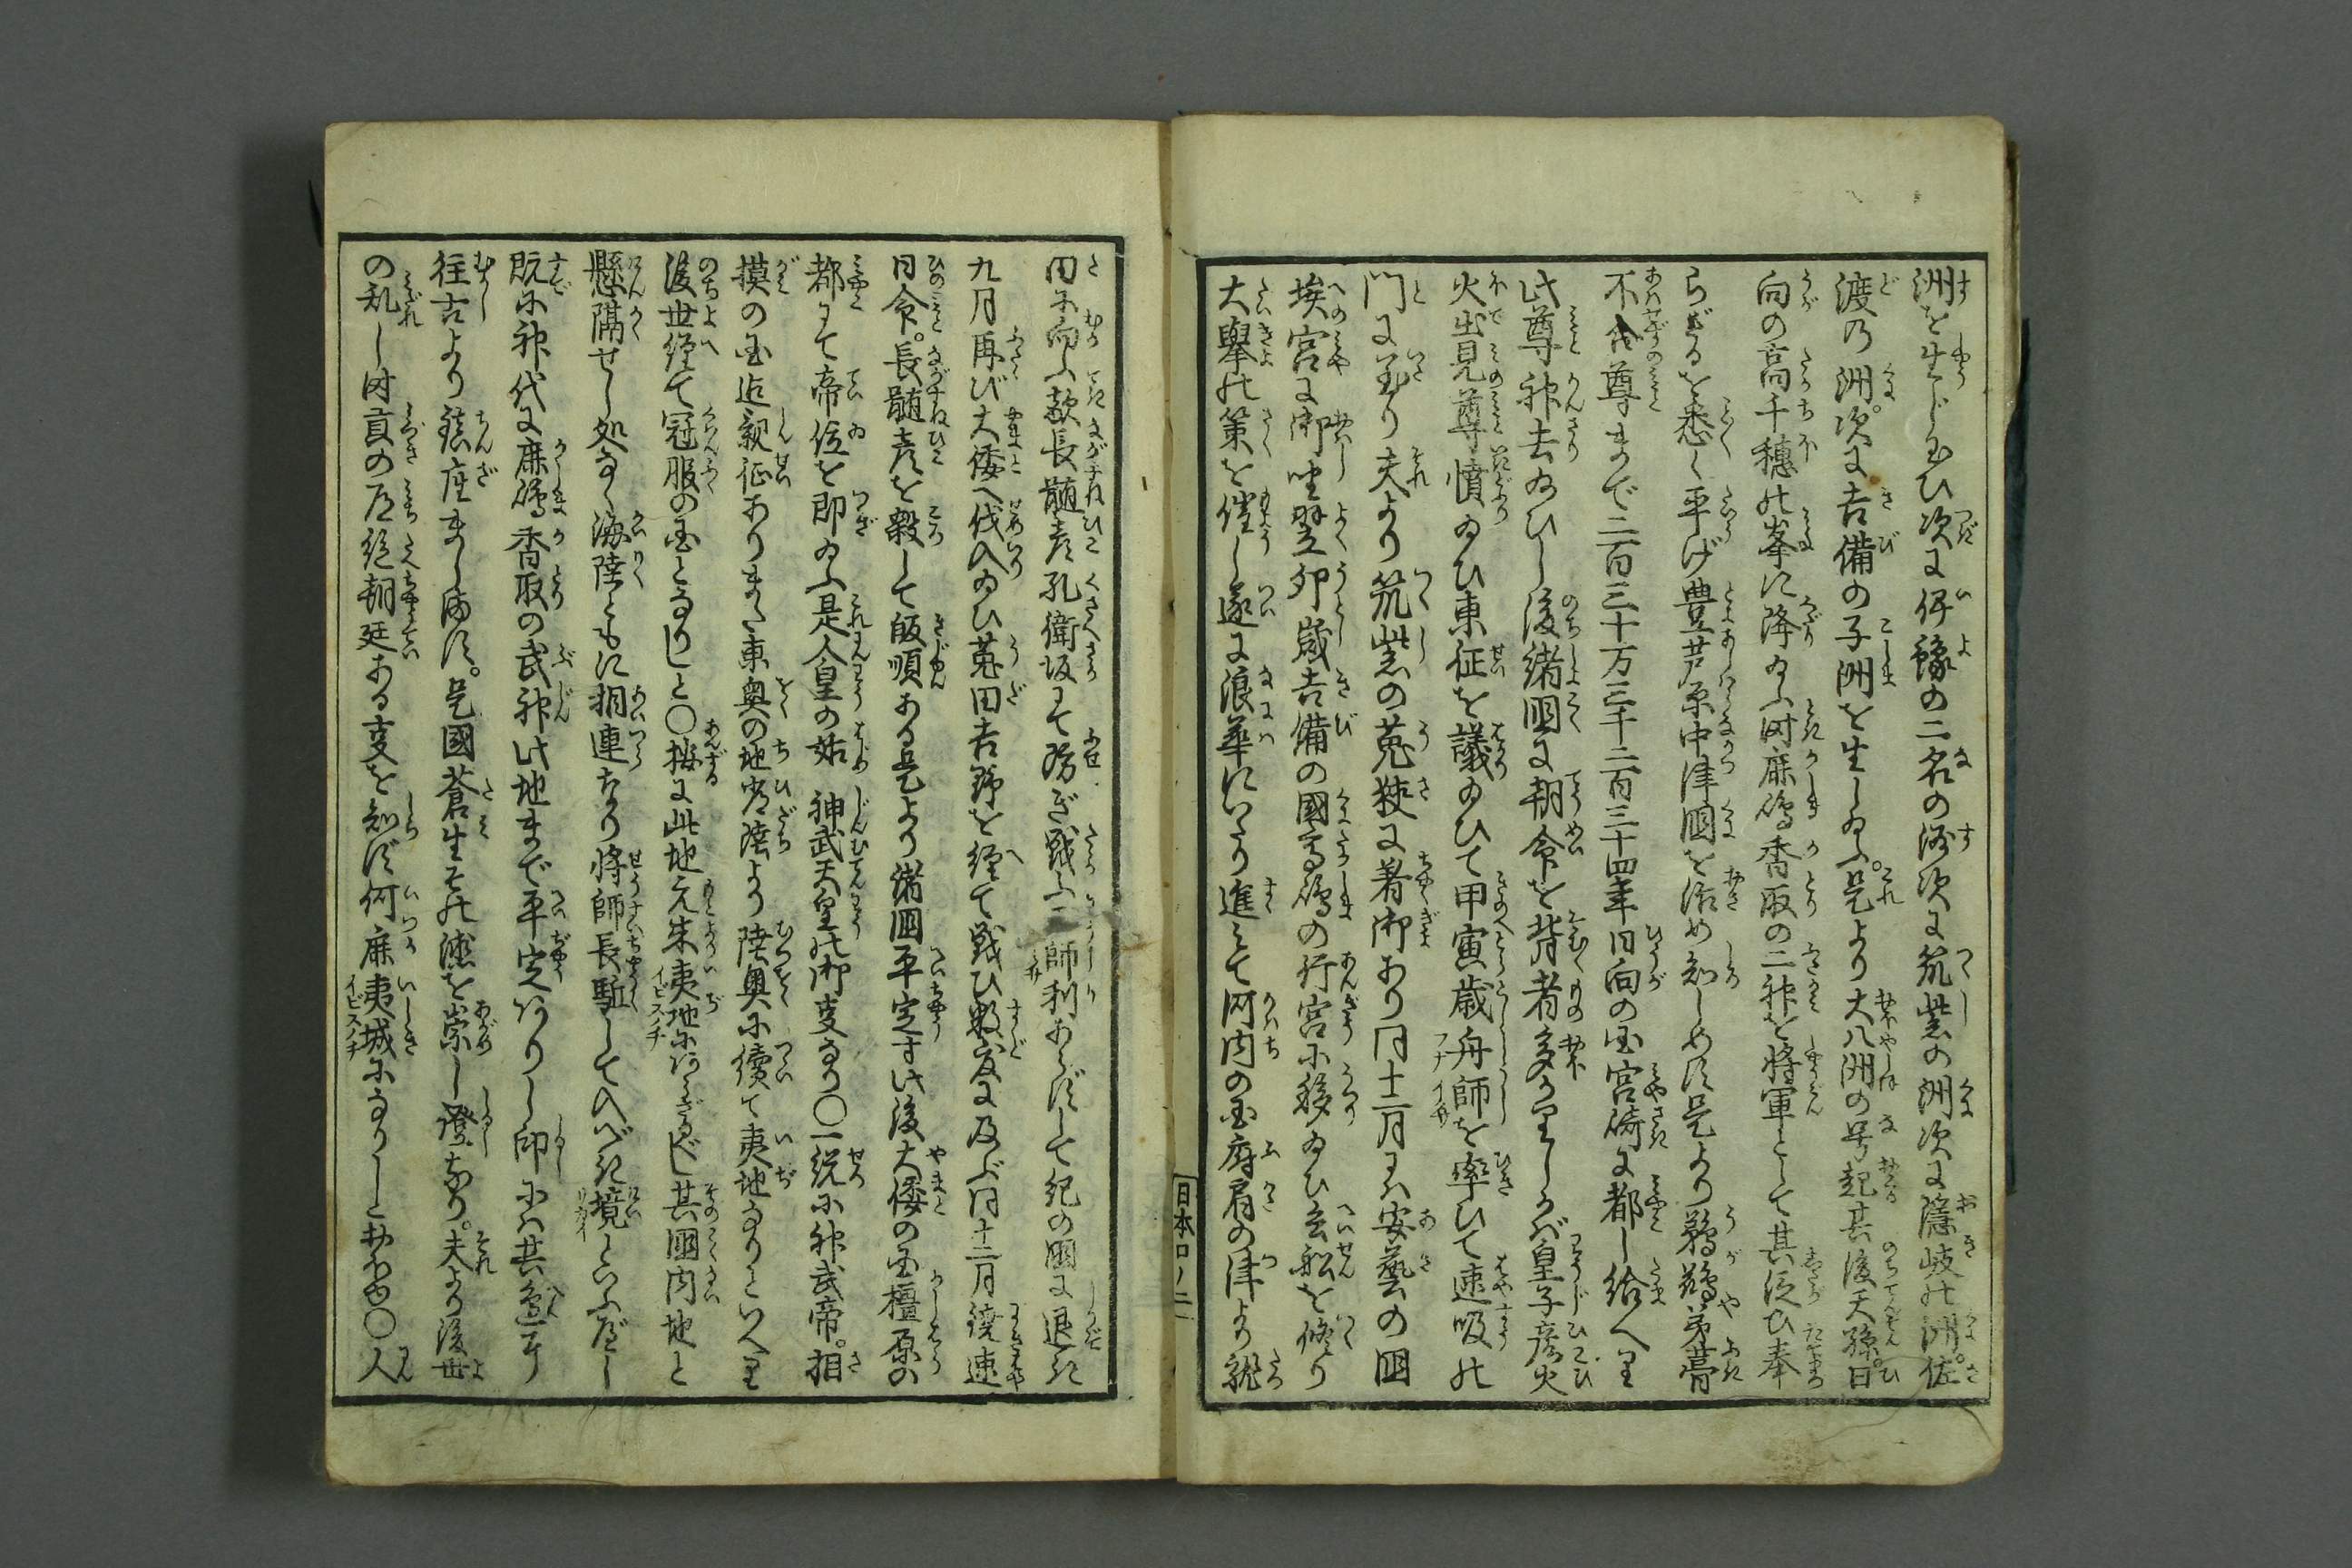 洲を生じ玉ひ次に伊豫の二名の洲次に筑紫の洲次に隠岐の洲。佐
渡の洲。次に吉備の子洲を生しゐふ。是より大八洲の号起其後天孫。日
向の高千穂の峯に降ゐふ時鹿嶋香取の二神を将軍として其従ひ奉
らざるを悉く平げ豊芦原中津國を治め知しめす是より鸕鷀草葺
不合尊まで二百三十万三千二百三十四年日向の国宮崎に都し給へり
此尊神去ゐひし後諸國に朝命を背者多かりしかバ皇子彦火
火出見尊憤ゐひ東征を議ゐひて甲寅歳舟師を率ひて速吸の
門に至り夫より筑紫の菟狭に着御あり同十二月にハ安藝の國
埃宮に御坐翌卯歳吉備の國高嶋の行宮に移ゐひ兵船を修り
大舉の策を催し遂に浪華にいたり進みて河内の国府肩の津より龍
田に向ふ敵長髄彦孔衛坂にて防ぎ戦ふ師利あらずして紀の國に退き
九月再び大倭へ伐入ゐひ菟田吉野を経て戦ひ数度に及ぶ同十二月饒速
日命。長髄彦を殺して皈順ある是より諸国平定す此後大倭の国橿原の
都にて帝位を即ゐふ是人皇の始 神武天皇の御事なり〇一説に神武帝。相
摸の国迄親征ありまた東奥の地常陸より陸奥に續て夷地なりといへり
後世経て冠服の国となりしと〇按に此地元来夷地にあらざるべし其國内地と
懸隔せし処なく海陸ともに相連なり将師長駈して入べき境といふべし
既に神代に鹿嶋香取の武神此地まで平定ありし印にハ其邊に
往古より鎮座まし満す。是國蒼生その徳を崇し證なり。夫より後世
の乱し時貢の道絶朝廷ある事を知ず何麻夷城になりしとおもゆ〇人
日本口ノ二